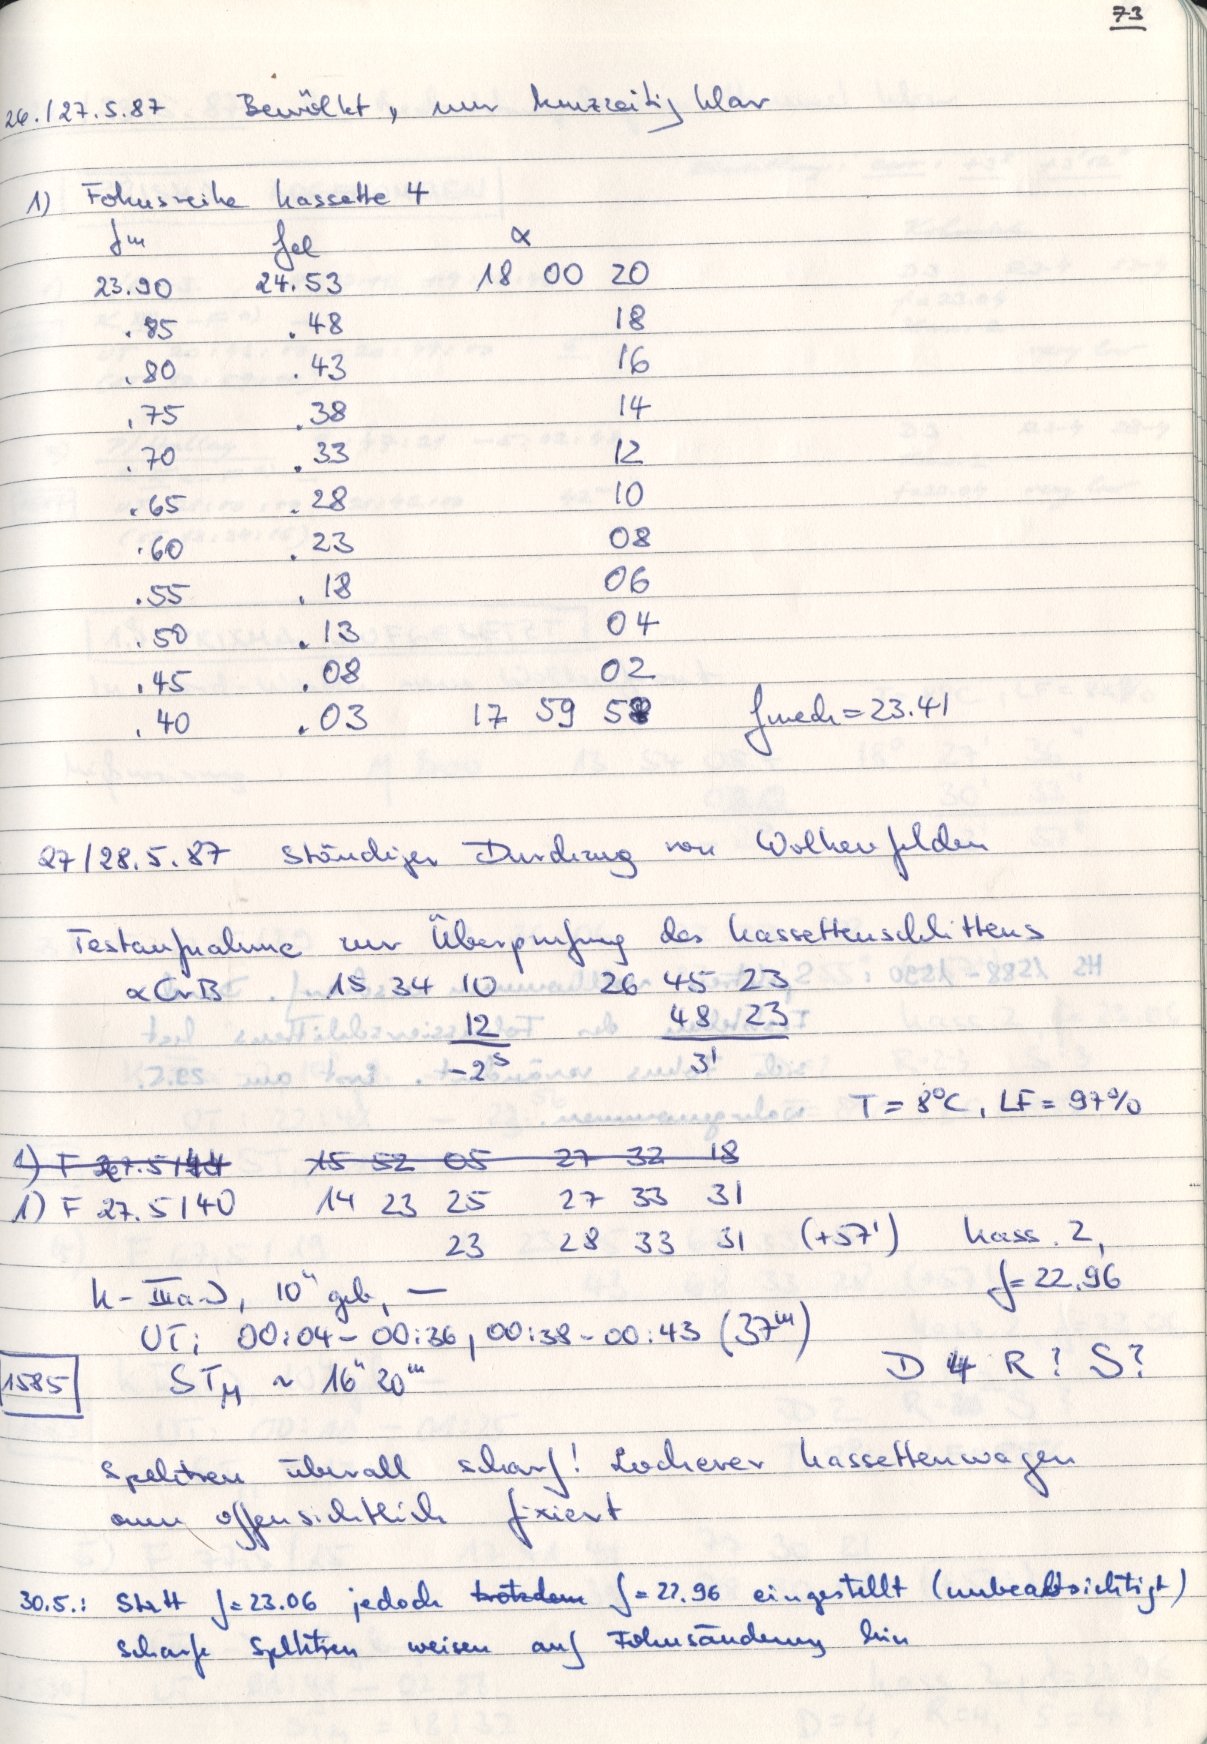 73
26./27.5.87 Bewölkt, nur kurzzeitig klar
1) Fokusreihe Kassette 4
fm fel α
23.90 24.53 18 00 20
.85 .48 18
.80 .43 16
.75 .38 14
.70 .33 12
.65 .28 10
.60 .23 08
.55 .18 06
.50 .13 04
.45 .08 02
.40 .03 17 59 58 fmech = 23.41
27/28.5.87 Ständiger Durchzug von Wolkenfeldern
Testaufnahme zur Überprüfung des Kassettenschlittens
αCrB 15 34 10 26 45 23
12 48 23
-2s 3'
T = 8°C, LF = 97%
1) F 27.5/44 15 52 05 27 32 18
1) F 27.5/40 14 23 25 27 33 31
23 28 33 31 (+57') Kass. 2,
f=22.96
K-IIIa-J, 10" geb, —
UT: 00:04-00:36, 00:38-00:43 (37m)
D 4 R? S?
1585 STM ~ 16h 20m
Spektren überall scharf! Lockerer Kassettenwagen
nun offensichtlich fixiert
30.5.: Statt f=23.06 jedoch trotzdem f=22.96 eingestellt (unbeabsichtigt)
Scharfe Spektren weisen auf Fokusänderung hin